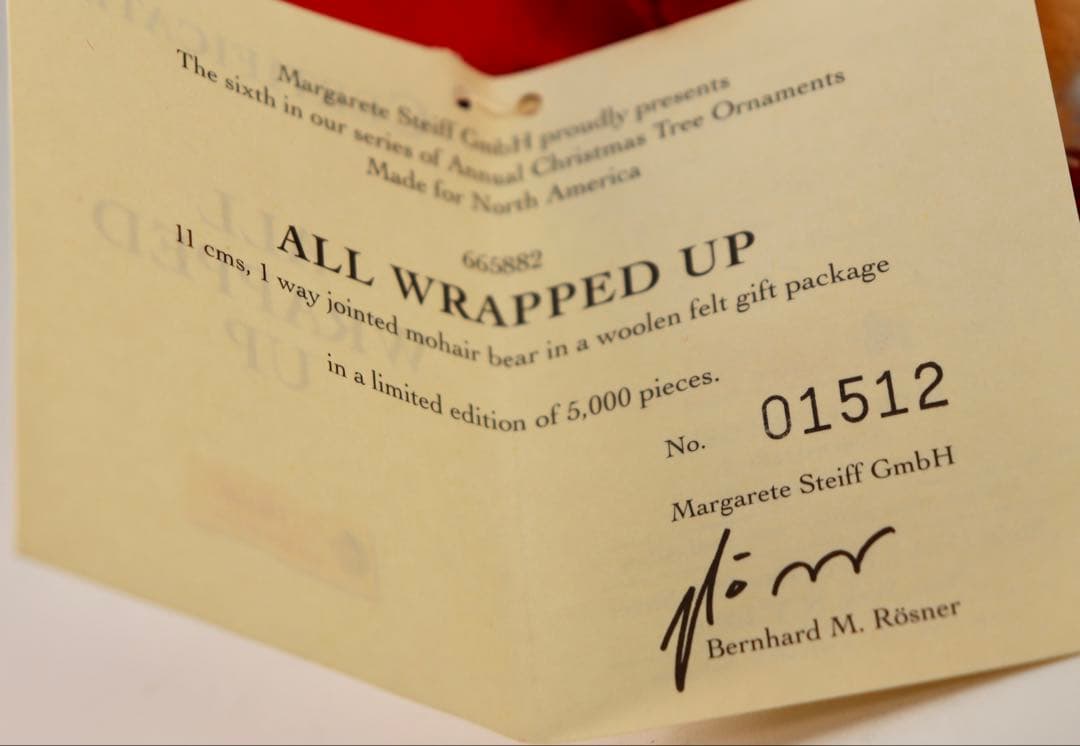 Margarete Steiff GmbH proudly presents
The sixth in our series of Annual Christmas Tree Ornaments
Made for North America
665882
ALL WRAPPED UP
11 cms, 1 way jointed mohair bear in a woolen felt gift package
in a limited edition of 5,000 pieces.
No. 01512
Margarete Steiff GmbH
Bernhard M. Rösner